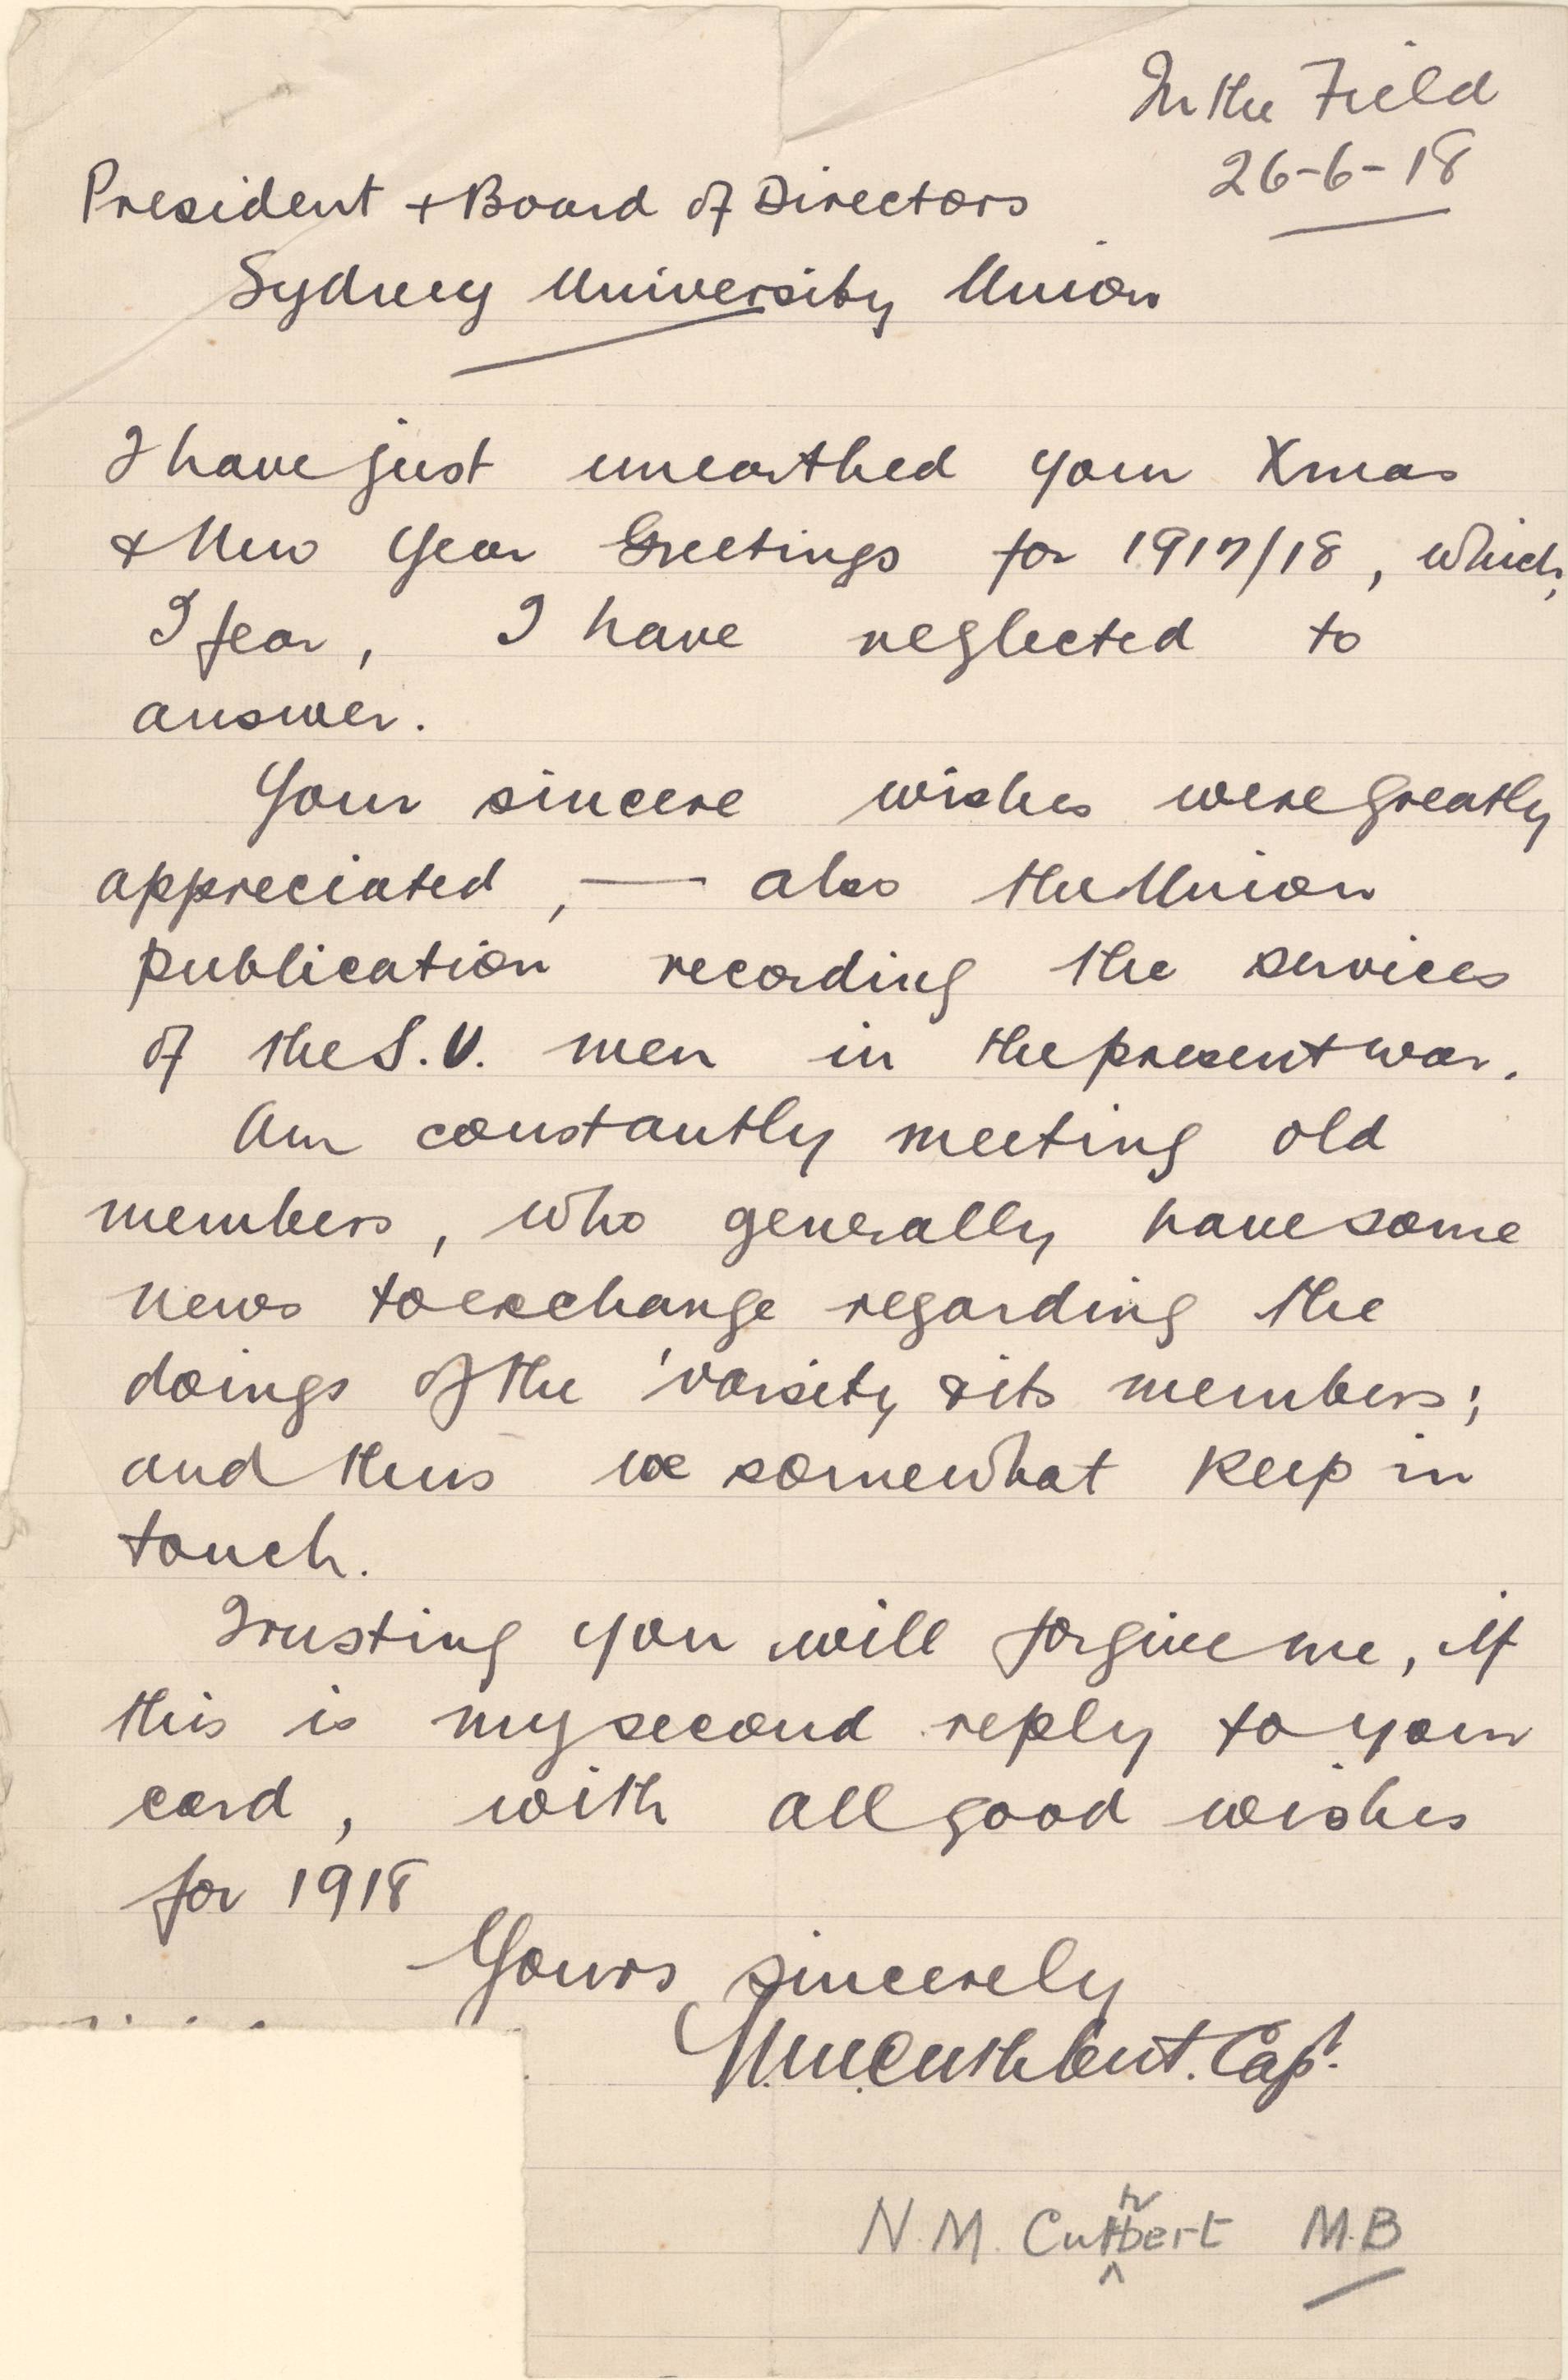 In the Field
26-6-18
President + Board of Directors
Sydney University Union
I have just unearthed your Xmas
& New Year Greetings for 1917/18, which,
I fear, I have neglected to
answer.
Your sincere wishes were greatly
appreciated, — also the Union
publication recording the services
of the S.U. men in the present war.
Am constantly meeting old
members, who generally have some
news to exchange regarding the
doings of the 'varsity & its members;
and thus we somewhat keep in
touch.
Trusting you will forgive me, if
this is my second reply to your
card, with all good wishes
for 1918
Yours sincerely
N.M. Cuthbert. Capt.
N.M. Cuthbert M.B